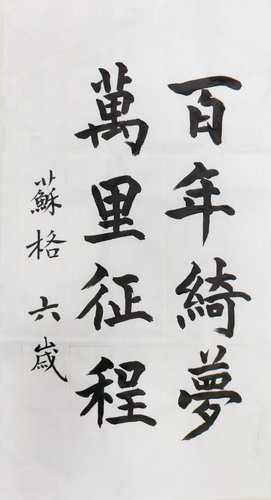 百年綺夢
萬里征程
蘇格 六歲